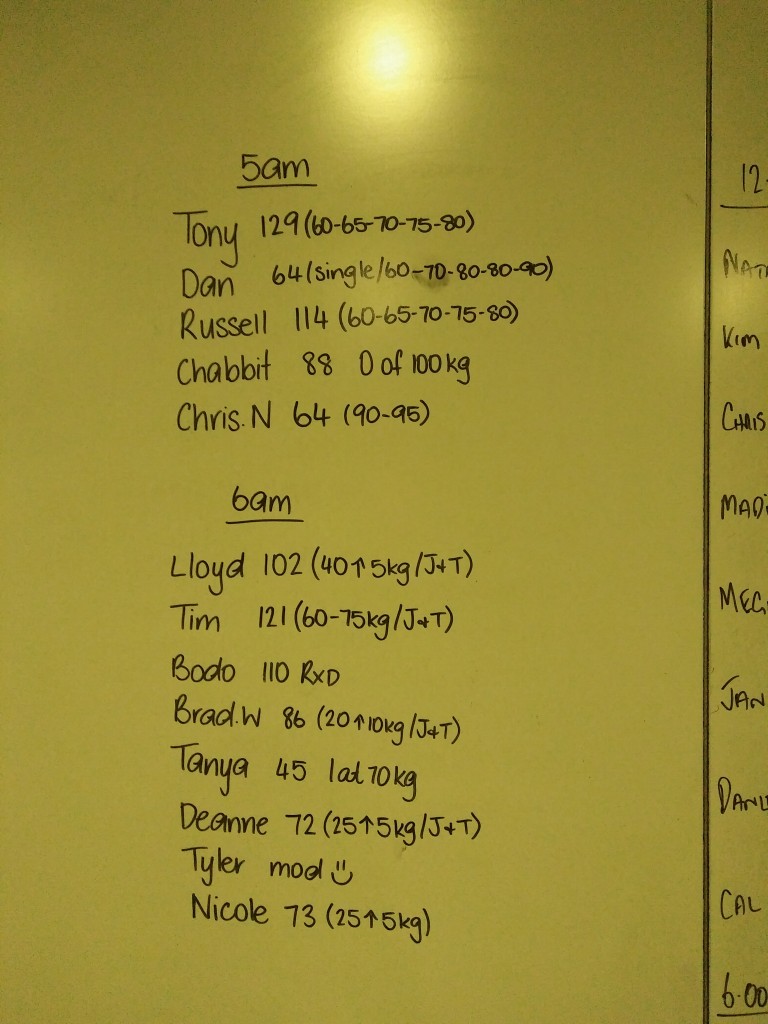 5am
Tony 129 (60-65-70-75-80)
Dan 64 (single/60-70-80-80-90)
Russell 114 (60-65-70-75-80)
Chabbit 88 0 of 100kg
Chris.N 64 (90-95)
6am
Lloyd 102 (40↑5kg/J+T)
Tim 121 (60-75kg/J+T)
Bodo 110 RxD
Brad.W 86 (20↑10kg/J+T)
Tanya 45 1at 70kg
Deanne 72 (25↑5kg/J+T)
Tyler mod
Nicole 73 (25↑5kg)
12
Kim
CHRIS
JAN
CAL
6.00